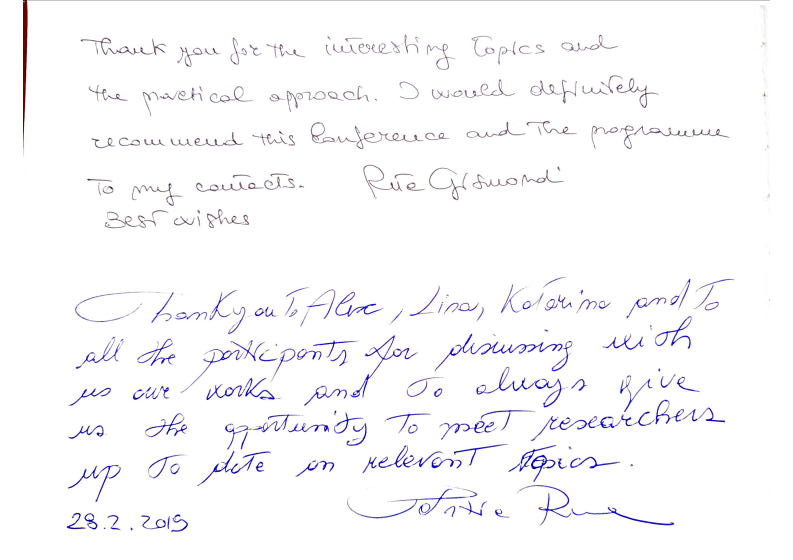 Thank you for the interesting topics and
the practical approach. I would definitely
recommend this Conference and the programme
to my contacts. Rita Gismondi
Best wishes
Thank you to Alex, Lina, Katarina and to
all the participants for discussing with
us our works and to always give
us the opportunity to meet researchers
up to date on relevant topics.
28.2.2019